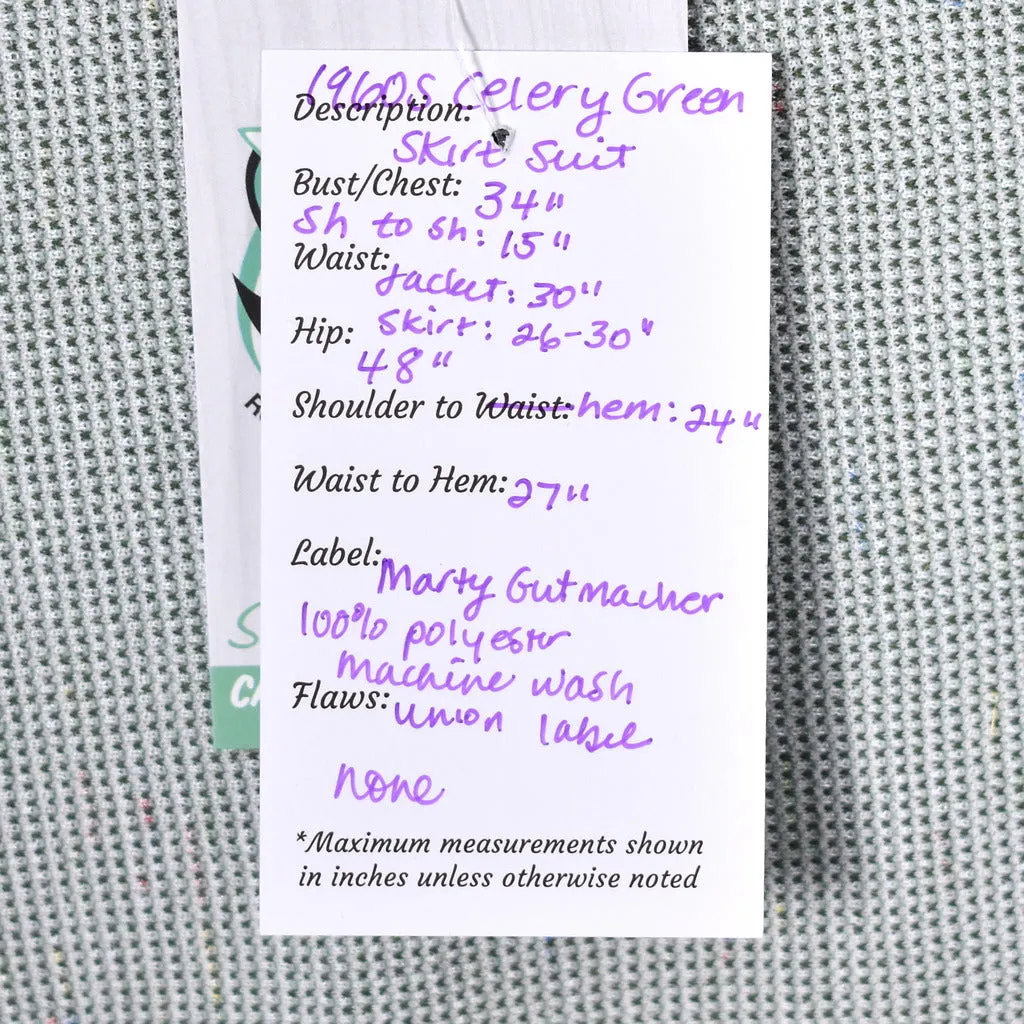 1960s Celery Green
Description:
Skirt Suit
Bust/Chest: 34"
Sh to sh: 15"
Waist:
Jacket: 30"
Hip: Skirt: 26-30"
48"
Shoulder to Waist: hem: 24"
Waist to Hem: 27"
Label:
Marty Gutmacher
100% polyester
machine wash
Flaws: union label
none
*Maximum measurements shown
in inches unless otherwise noted